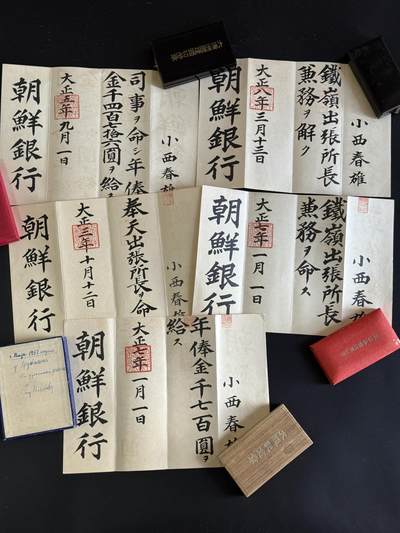 小西春雄
司事ヲ命シ年俸
金千四百拾六圓ヲ給
大正五年九月一日
朝鮮銀行
小西春雄
鐵嶺出張所長
兼務ヲ解ク
大正八年三月十三日
朝鮮銀行
小西春雄
奉天出張所長ヲ命
大正三年十月十二日
朝鮮銀行
小西春雄
鐵嶺出張所長
兼務ヲ命ス
大正七年一月一日
朝鮮銀行
小西春雄
年俸金千七百圓ヲ
給ス
大正七年一月一日
朝鮮銀行